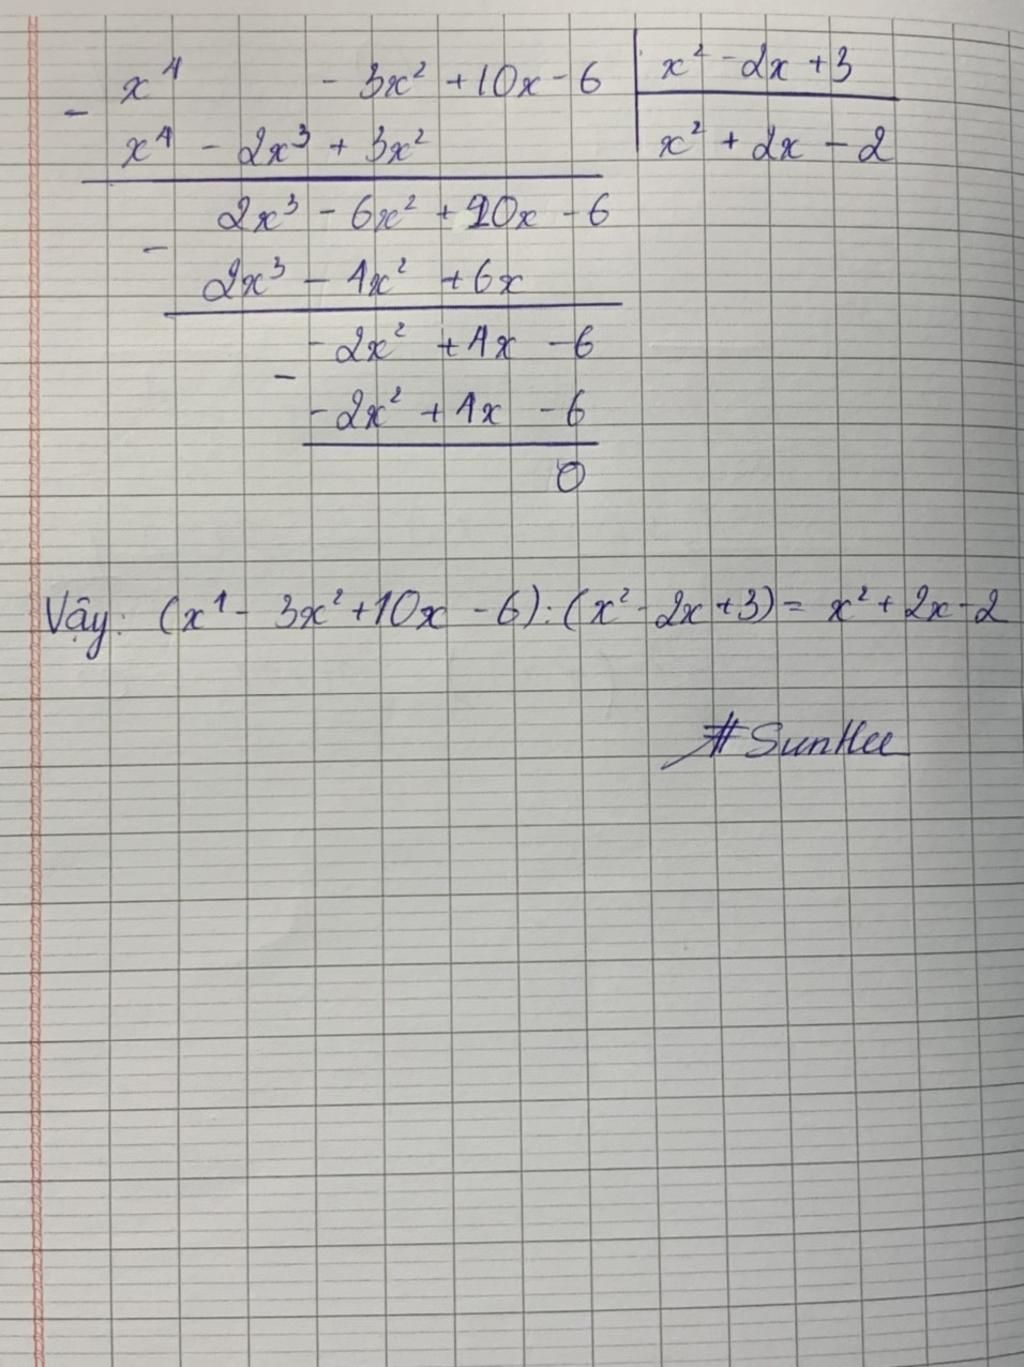 x⁴ - 3x² + 10x - 6 | x² - 2x + 3
-
x⁴ - 2x³ + 3x² | x² + 2x - 2
2x³ - 6x² + 10x - 6
-
2x³ - 4x² + 6x
- 2x² + 4x - 6
-
- 2x² + 4x - 6
0
Vậy: (x⁴ - 3x² + 10x - 6) : (x² - 2x + 3) = x² + 2x - 2
#SunHee